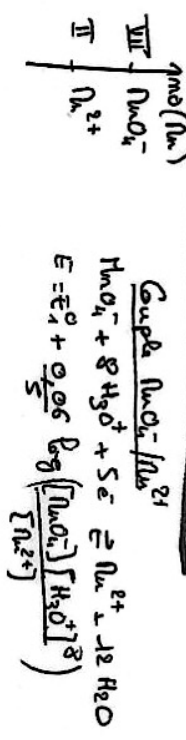 no(Mn)
VII MnO₄⁻
II Mn²⁺
Couple MnO₄⁻/Mn²⁺
MnO₄⁻ + 8 H₃O⁺ + 5e⁻ ⇌ Mn²⁺ + 12 H₂O
E = E₁⁰ + 0,06/5 log([MnO₄⁻][H₃O⁺]⁸/[Mn²⁺])